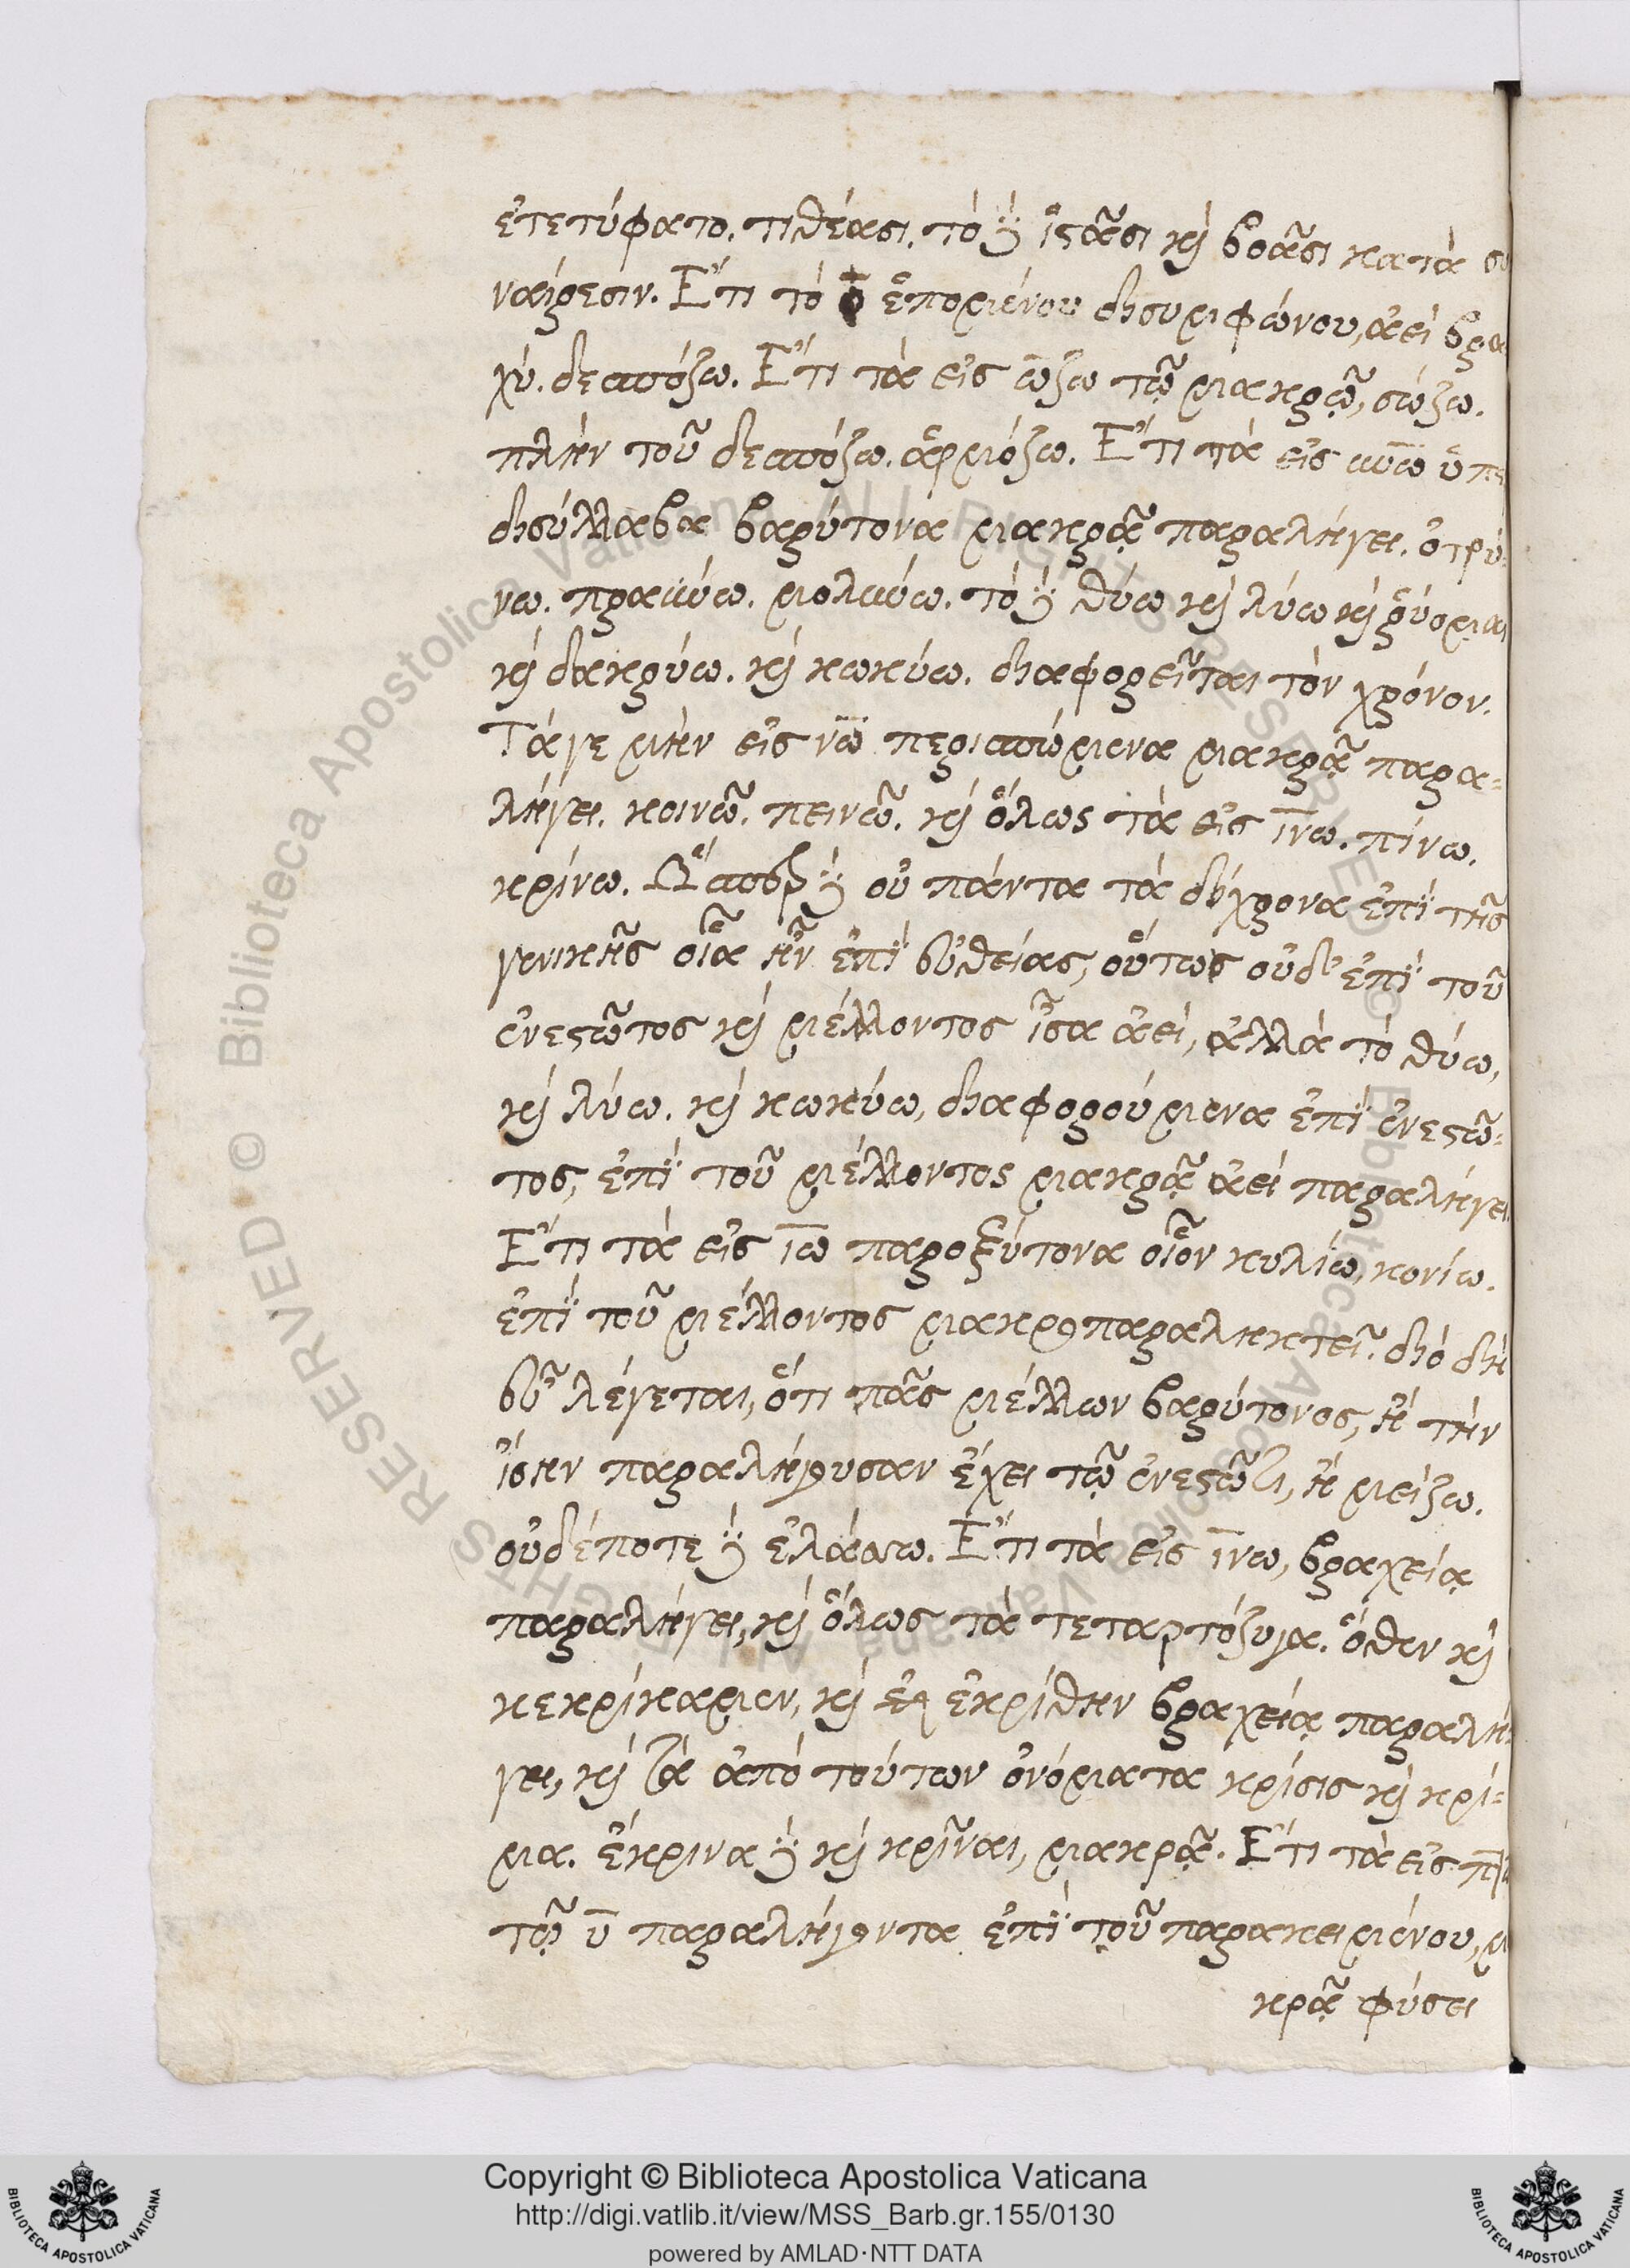 ἐτετύφατο. τιθέασι. τὸ δὲ ἱστᾶσι καὶ βοᾶσι κατὰ συ
ναίρεσιν. Ἔτι τὸ ο ἑπομένου δισυμφώνου, ἀεὶ βρα
χύ. δεσπόζω. Ἔτι τὰ εἰς ώζω τῷ μακρῷ, σώζω.
πλὴν τοῦ δεσπόζω. ἁρμόζω. Ἔτι τὰ εἰς ύνω ὑπὲρ
δισύλλαβα βαρύτονα μακρᾷ παραλήγει. ὀτρύ-
νω. πραΰνω. μολύνω. τὸ δὲ θύω καὶ λύω καὶ ῥύομαι
καὶ δακρύω. καὶ κωκύω. διαφορεῖται τὸν χρόνον.
Τάγε μὴν εἰς νῶ περισπώμενα μακρᾷ παρα-
λήγει. κοινῶ. πεινῶ. καὶ ὅλως τὰ εἰς ίνω. πίνω.
κρίνω. Ὥσπερ δὲ οὐ πάντα τὰ δίχρονα ἐπὶ τῆς
γενικῆς οἷα ἦν ἐπὶ εὐθείας, οὕτως οὐδ' ἐπὶ τοῦ
ἐνεστῶτος καὶ μέλλοντος ἶσα ἀεί, ἀλλὰ τὸ θύω,
καὶ λύω. καὶ κωκύω, διαφορούμενα ἐπὶ ἐνεστῶ-
τος, ἐπὶ τοῦ μέλλοντος μακρᾷ ἀεὶ παραλήγει
Ἔτι τὰ εἰς ίω παροξύτονα οἷον κυλίω, κονίω.
ἐπὶ τοῦ μέλλοντος μακροπαραληκτεῖ. διὸ δὴ
εὖ λέγεται, ὅτι πᾶς μέλλων βαρύτονος, ἢ τὴν
ἴσην παραλήγουσαν ἔχει τῷ ἐνεστῶτι, ἢ μείζω.
οὐδέποτε δὲ ἐλάττω. Ἔτι τὰ εἰς ίνω, βραχείᾳ
παραλήγει, καὶ ὅλως τὰ τεταρτόζυγα. ὅθεν καὶ
κεκρίκαμεν, καὶ ἐκρίθην βραχείᾳ παραλή-
γει, καὶ τὰ ἀπὸ τούτων ὀνόματα κρίσις καὶ κρί-
μα. ἔκρινα δὲ καὶ κρῖναι, μακρᾷ. Ἔτι τὰ εἰς πτω
τῷ υ παραλήγοντα ἐπὶ τοῦ παρακειμένου, μα
κρᾷ φύσει
Copyright © Biblioteca Apostolica Vaticana
http://digi.vatlib.it/view/MSS_Barb.gr.155/0130
powered by AMLAD·NTT DATA